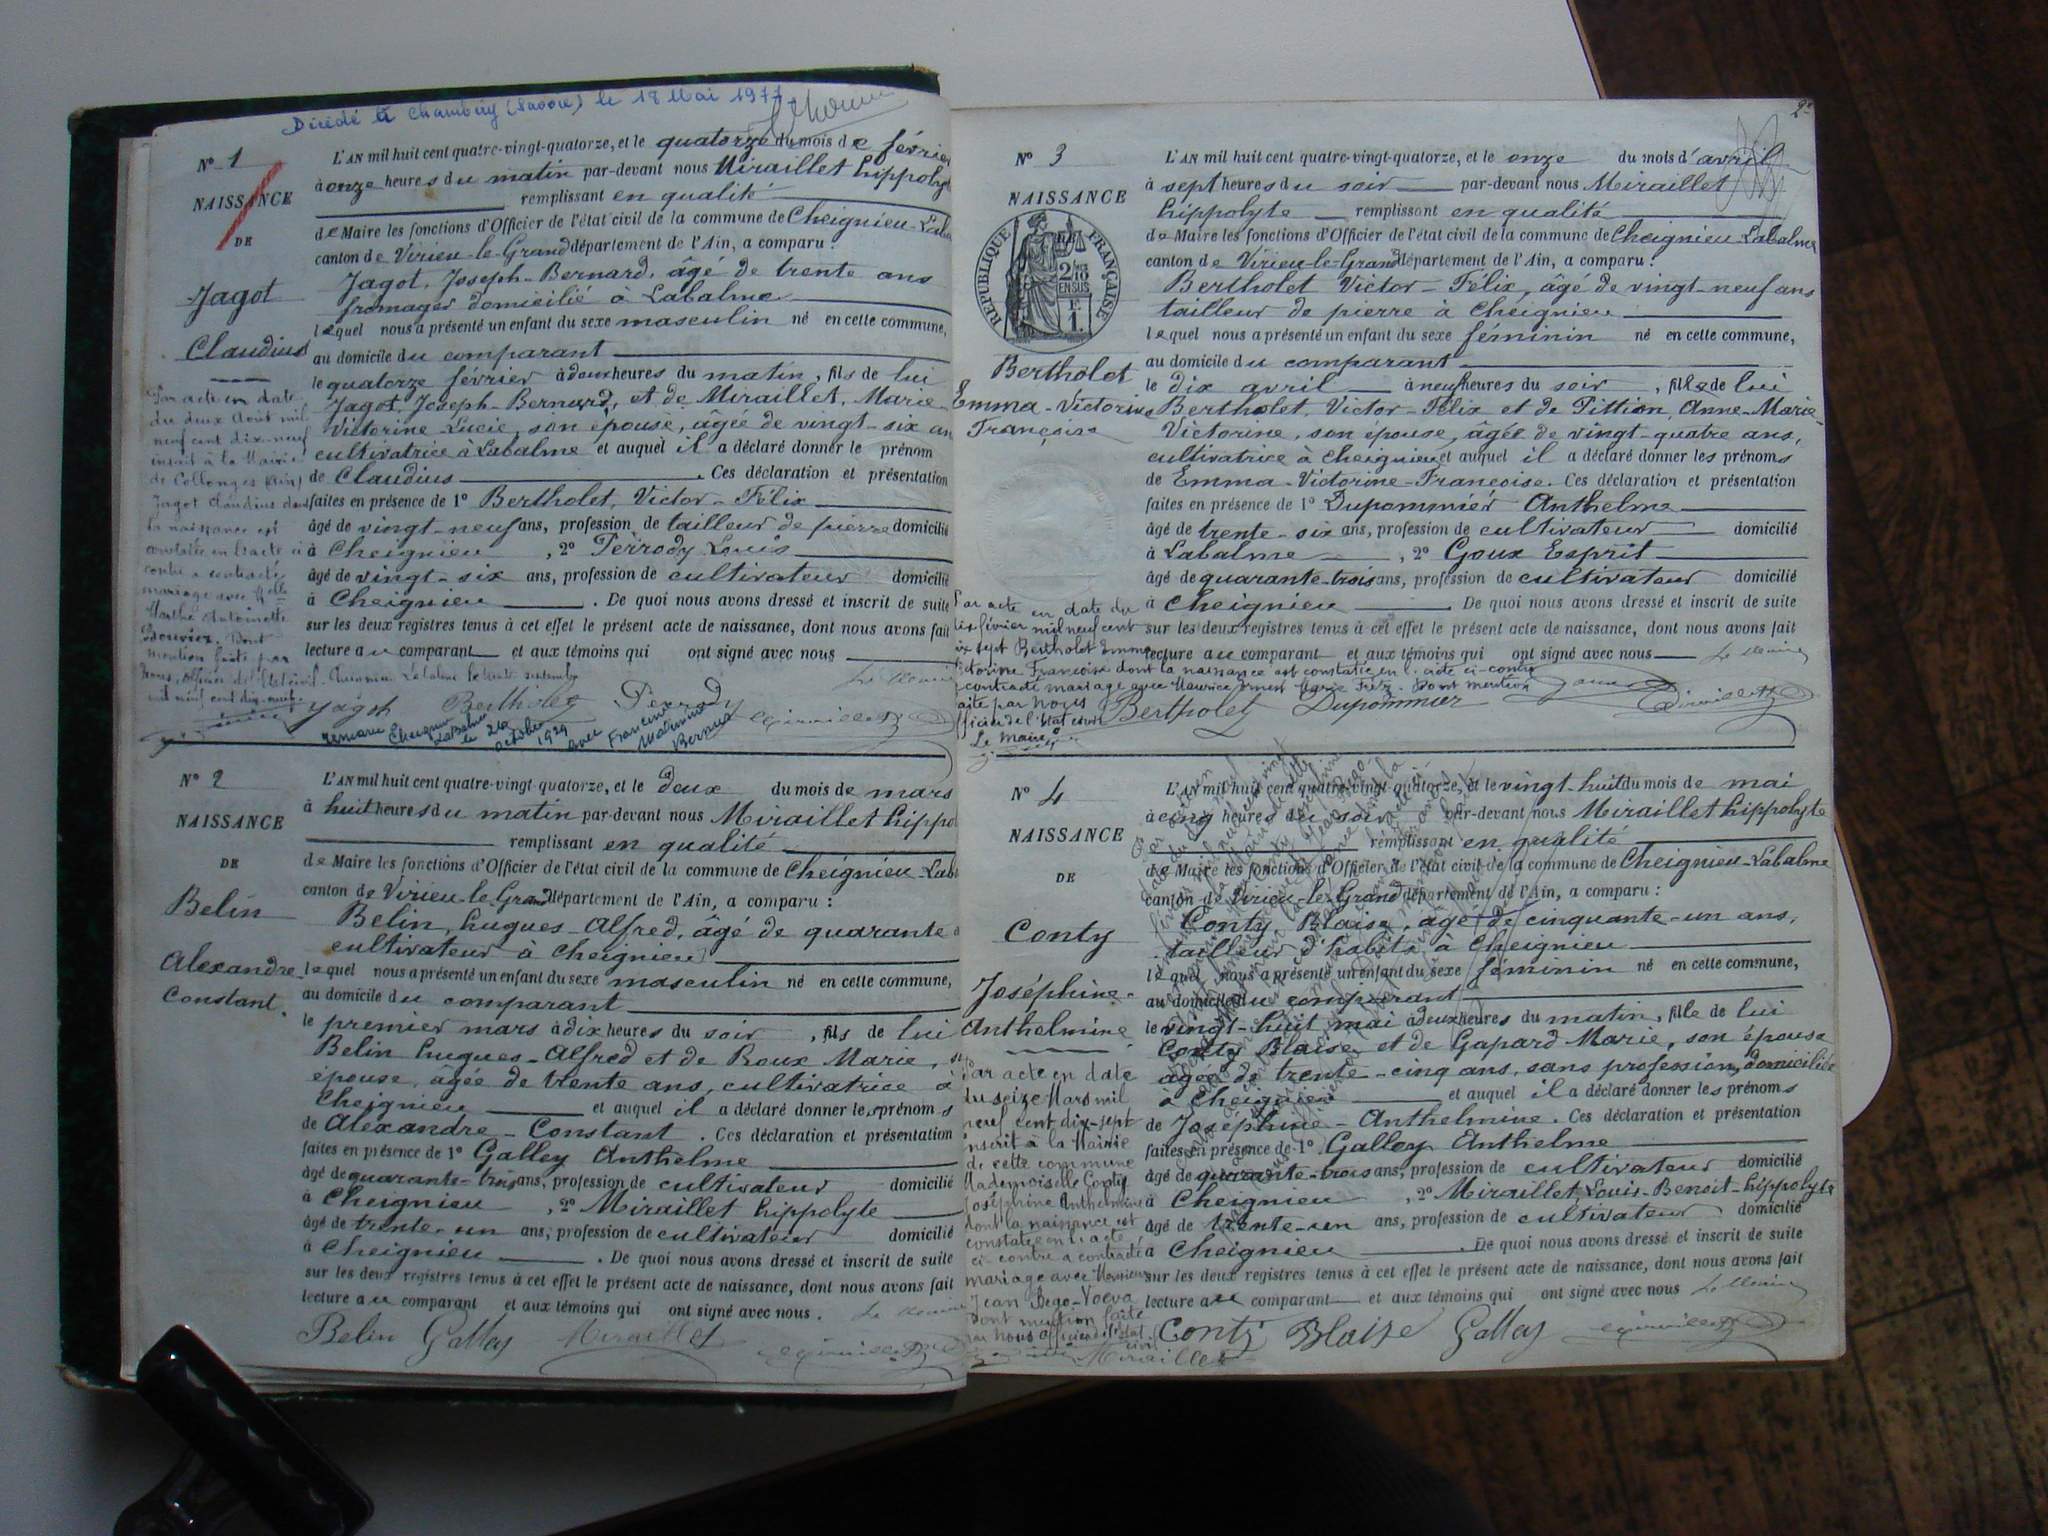 Décédé à Chambéry (Savoie) le 18 Mai 1977
N° 1
NAISSANCE
DE
Jagot
Claudius
L'AN mil huit cent quatre-vingt-quatorze, et le quatorze du mois de février
à onze heures du matin par-devant nous Miraillet hippolyte
remplissant en qualité
de Maire les fonctions d'Officier de l'état civil de la commune de Cheignieu-Laba
canton de Virieu-le-Grand département de l'Ain, a comparu :
Jagot, Joseph-Bernard, âgé de trente ans
fromager domicilié à Labalme
lequel nous a présenté un enfant du sexe masculin né en cette commune,
au domicile du comparant
le quatorze février à deux heures du matin, fils de lui
Jagot, Joseph-Bernard, et de Miraillet, Marie-
Victorine-Lucie, son épouse, âgée de vingt-six an
cultivatrice à Labalme et auquel il a déclaré donner le prénom
de Claudius. Ces déclaration et présentation
faites en présence de 1° Bertholet, Victor-Félix
âgé de vingt-neuf ans, profession de tailleur de pierre domicilié
à Cheignieu, 2° Perrody Louis
âgé de vingt-six ans, profession de cultivateur domicilié
à Cheignieu. De quoi nous avons dressé et inscrit de suite
sur les deux registres tenus à cet effet le présent acte de naissance, dont nous avons fait
lecture au comparant et aux témoins qui ont signé avec nous
Le Maire
Jagot Bertholet Perrody
Par acte en date
du deux Août mil
neuf cent dix-neuf
inscrit à la Mairie
de Collonges (Ain)
Jagot Claudius dont
la naissance est
constatée en l'acte ci
contre a contracté
mariage avec Melle
Marthe Antoinette
Bouvier. Dont
mention faite par
Nous, officier de l'Etat civil. Cheignieu Labalme le trente septembre
mil neuf cent dix-neuf
remarié Cheignieu Labalme le 26 octobre 1929 avec Francine Marianne Bernard
N° 2
NAISSANCE
DE
Belin
Alexandre-
Constant.
L'AN mil huit cent quatre-vingt-quatorze, et le deux du mois de mars
à huit heures du matin par-devant nous Miraillet hippol
remplissant en qualité
de Maire les fonctions d'Officier de l'état civil de la commune de Cheignieu-Lab
canton de Virieu-le-Grand département de l'Ain, a comparu :
Belin, hugues-Alfred, âgé de quarante
cultivateur à Cheignieu
lequel nous a présenté un enfant du sexe masculin né en cette commune,
au domicile du comparant
le premier mars à dix heures du soir, fils de lui
Belin hugues-Alfred et de Roux Marie, s
épouse, âgée de trente ans, cultivatrice à
Cheignieu et auquel il a déclaré donner les prénoms
de Alexandre-Constant. Ces déclaration et présentation
faites en présence de 1° Galley Anthelme
âgé de quarante-trois ans, profession de cultivateur domicilié
à Cheignieu, 2° Miraillet hippolyte
âgé de trente-un ans, profession de cultivateur domicilié
à Cheignieu. De quoi nous avons dressé et inscrit de suite
sur les deux registres tenus à cet effet le présent acte de naissance, dont nous avons fait
lecture au comparant et aux témoins qui ont signé avec nous.
Le Maire
Belin Galley Miraillet
2e
N° 3
NAISSANCE
RÉPUBLIQUE FRANÇAISE
Bertholet
Emma-Victorine
Françoise
L'AN mil huit cent quatre-vingt-quatorze, et le onze du mois d'avril
à sept heures du soir par-devant nous Miraillet
hippolyte remplissant en qualité
de Maire les fonctions d'Officier de l'état civil de la commune de Cheignieu Labalme
canton de Virieu-le-Grand département de l'Ain, a comparu :
Bertholet Victor-Félix, âgé de vingt-neuf ans
tailleur de pierre à Cheignieu
lequel nous a présenté un enfant du sexe féminin né en cette commune,
au domicile du comparant
le dix avril à neuf heures du soir, fille de lui
Bertholet, Victor-Félix et de Pittion, Anne-Marie-
Victorine, son épouse, âgée de vingt-quatre ans,
cultivatrice à Cheignieu et auquel il a déclaré donner les prénoms
de Emma-Victorine-Françoise. Ces déclaration et présentation
faites en présence de 1° Dupommier Anthelme
âgé de trente-six ans, profession de cultivateur domicilié
à Labalme, 2° Goux Esprit
âgé de quarante-trois ans, profession de cultivateur domicilié
à Cheignieu. De quoi nous avons dressé et inscrit de suite
sur les deux registres tenus à cet effet le présent acte de naissance, dont nous avons fait
lecture au comparant et aux témoins qui ont signé avec nous
Le Maire
Par acte en date du
dix février mil neuf cent
dix sept Bertholet Emma
Victorine Françoise dont la naissance est constatée en l'acte ci-contre
contracté mariage avec Maurice Ernest Dont mention
faite par Nous
officier de l'Etat civil
Le Maire
Bertholet Dupommier
N° 4
NAISSANCE
DE
Conty
Joséphine-
Anthelmine
L'AN mil huit cent quatre-vingt-quatorze, et le vingt-huit du mois de mai
à cinq heures du soir par-devant nous Miraillet hippolyte
remplissant en qualité
de Maire les fonctions d'Officier de l'état civil de la commune de Cheignieu-Labalme
canton de Virieu-le-Grand département de l'Ain, a comparu :
Conty Blaise, âgé de cinquante-un ans,
tailleur d'habits à Cheignieu
lequel nous a présenté un enfant du sexe féminin né en cette commune,
au domicile du comparant
le vingt-huit mai à deux heures du matin, fille de lui
Conty Blaise et de Gapard Marie, son épouse
âgée de trente-cinq ans, sans profession, domiciliée
à Cheignieu et auquel il a déclaré donner les prénoms
de Joséphine-Anthelmine. Ces déclaration et présentation
faites en présence de 1° Galley Anthelme
âgé de quarante-trois ans, profession de cultivateur domicilié
à Cheignieu, 2° Miraillet Louis-Benoit-hippolyte
âgé de trente-un ans, profession de cultivateur domicilié
à Cheignieu. De quoi nous avons dressé et inscrit de suite
sur les deux registres tenus à cet effet le présent acte de naissance, dont nous avons fait
lecture au comparant et aux témoins qui ont signé avec nous
Le Maire
Par acte en date
du seize Mars mil
neuf cent dix-sept
inscrit à la Mairie
de cette commune
Mademoiselle Conty
Joséphine Anthelmine
dont la naissance est
constatée en l'acte
ci-contre a contracté
mariage avec Monsieur
Jean Bego-
Dont mention faite
par Nous officier de l'Etat
civil
Miraillet
Conty Blaise Galley